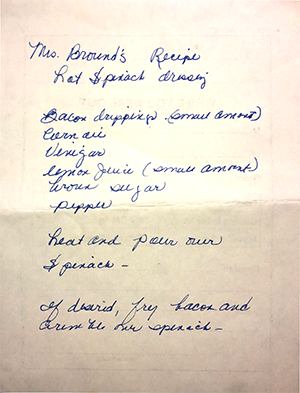 Mrs. Bround's Recipe
hot Spinach dressing
Bacon drippings (small amount)
Corn oil
Vinigar
lemon juice (small amount)
brown sugar
pepper
heat and pour over
Spinach -
If desired, fry bacon and
crumble over spinach -